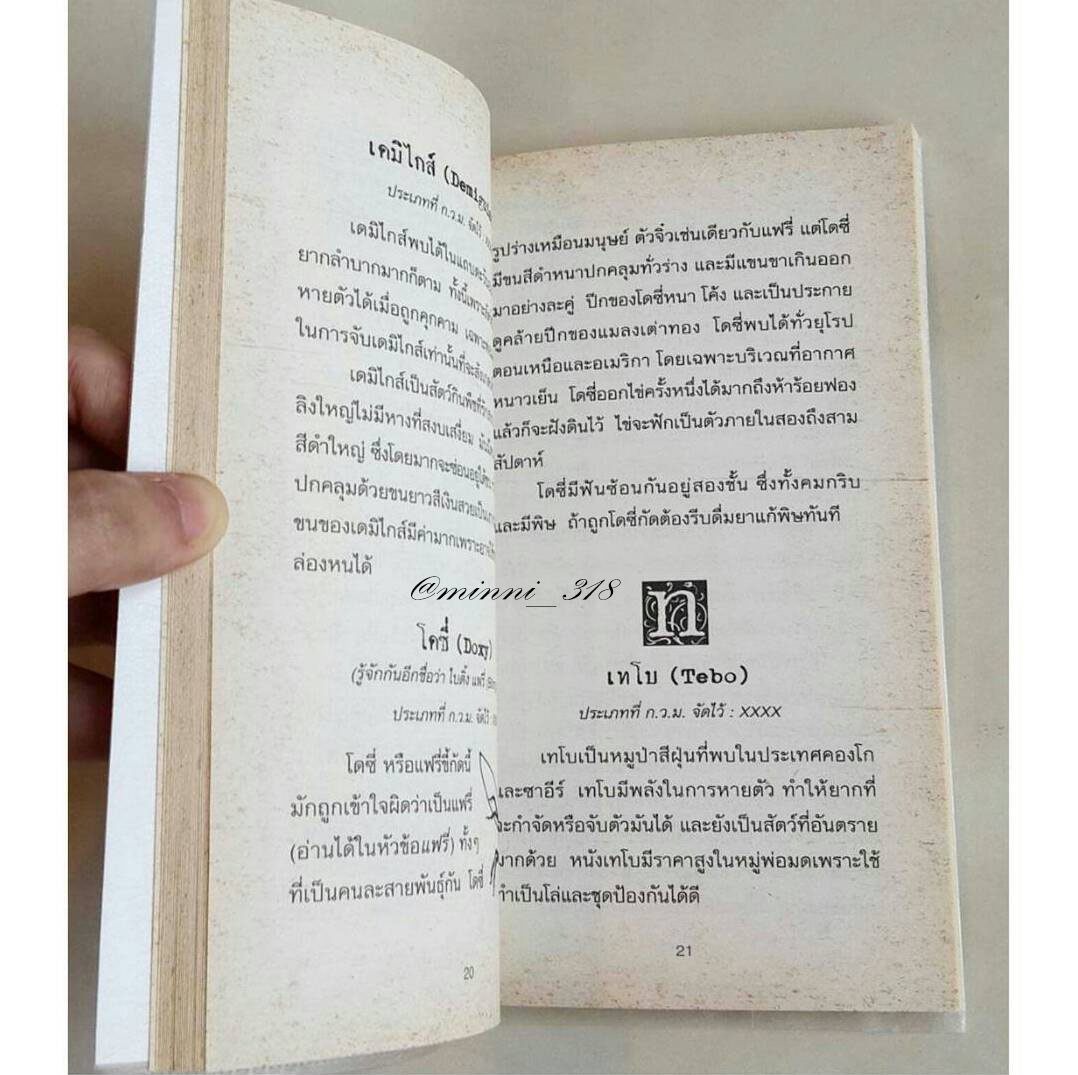 เดมิไกส์
ประเภทที่ ก.ว.ม. จัดไว้ :
เดมิไกส์พบได้ในแถบตะวัน
ยากลำบากมากก็ตาม ทั้งนี้เพราะ
หายตัวได้เมื่อถูกคุกคาม
ในการจับเดมิไกส์เท่านั้นที่จะ
เดมิไกส์เป็นสัตว์กินพืชที่
ลิงใหญ่ไม่มีหางที่สงบเสงี่ยม
สีดำใหญ่ ซึ่งโดยมากจะซ่อนอยู่
ปกคลุมด้วยขนยาวสีเงินสวย
ขนของเดมิไกส์มีค่ามากเพราะ
ล่องหนได้
โดซี่ (Doxy)
(รู้จักกันอีกชื่อว่า ไบติ้ง แฟรี่
ประเภทที่ ก.ว.ม. จัดไว้ :
โดซี่ หรือแฟรี่ขี้กัดนี้
มักถูกเข้าใจผิดว่าเป็นแฟรี่
(อ่านได้ในหัวข้อแฟรี่) ทั้งๆ
ที่เป็นคนละสายพันธุ์กัน โดซี่
20
รูปร่างเหมือนมนุษย์ ตัวจิ๋วเช่นเดียวกับแฟรี่ แต่โดซี่
มีขนสีดำหนาปกคลุมทั่วร่าง และมีแขนขาเกินออก
มาอย่างละคู่ ปีกของโดซี่หนา โค้ง และเป็นประกาย
ดูคล้ายปีกของแมลงเต่าทอง โดซี่พบได้ทั่วยุโรป
ตอนเหนือและอเมริกา โดยเฉพาะบริเวณที่อากาศ
หนาวเย็น โดซี่ออกไข่ครั้งหนึ่งได้มากถึงห้าร้อยฟอง
แล้วก็จะฝังดินไว้ ไข่จะฟักเป็นตัวภายในสองถึงสาม
สัปดาห์
โดซี่มีฟันซ้อนกันอยู่สองชั้น ซึ่งทั้งคมกริบ
และมีพิษ ถ้าถูกโดซี่กัดต้องรีบดื่มยาแก้พิษทันที
@minni_318
ท
เทโบ (Tebo)
ประเภทที่ ก.ว.ม. จัดไว้ : XXXX
เทโบเป็นหมูป่าสีฝุ่นที่พบในประเทศคองโก
และซาอีร์ เทโบมีพลังในการหายตัว ทำให้ยากที่
จะกำจัดหรือจับตัวมันได้ และยังเป็นสัตว์ที่อันตราย
มากด้วย หนังเทโบมีราคาสูงในหมู่พ่อมดเพราะใช้
ทำเป็นโล่และชุดป้องกันได้ดี
21